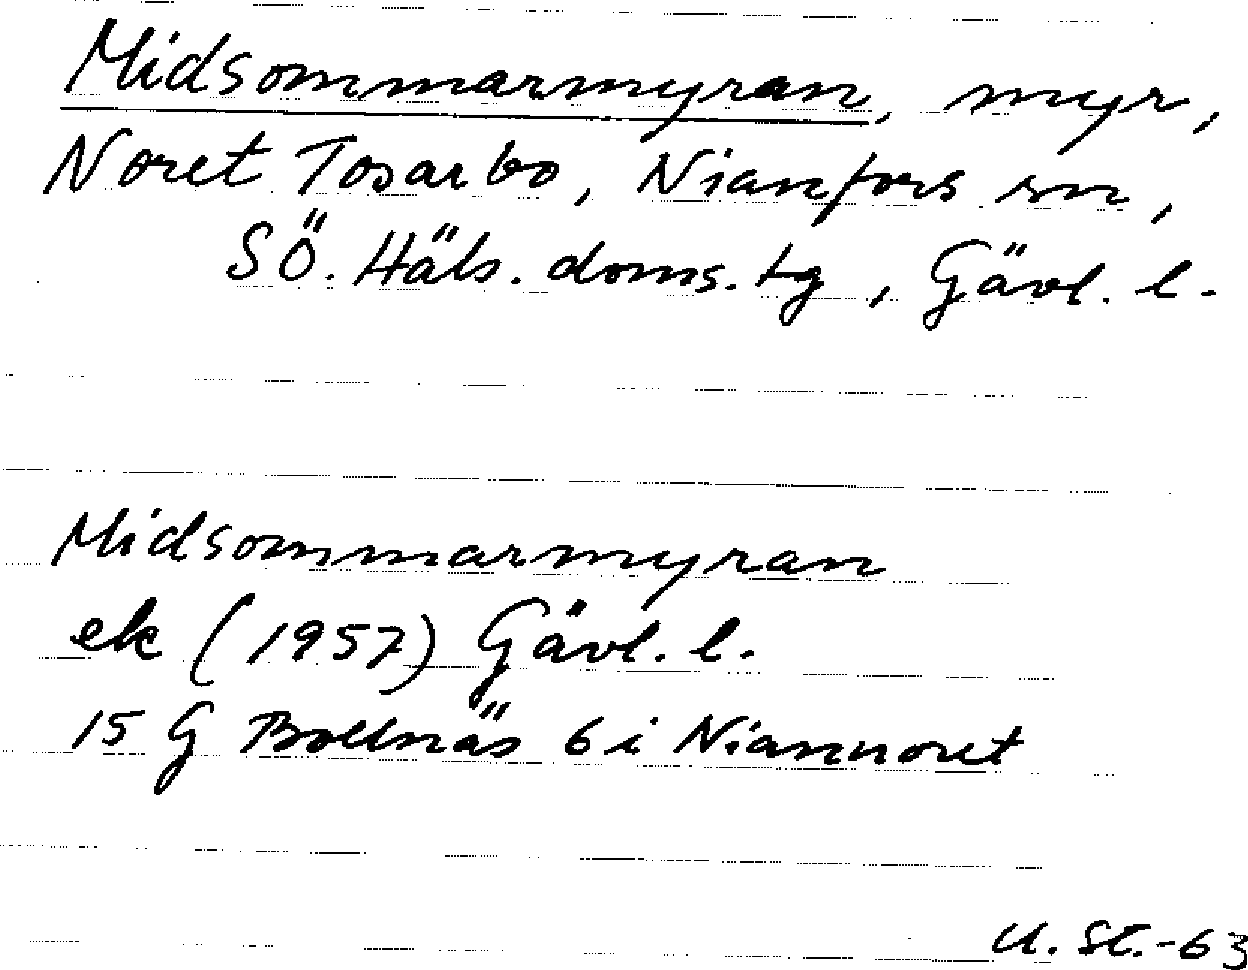 Midsommarmyran, myr,
Noret Tosarbo, Nianfors sn,
SÖ. Häls. doms. tg, Gävl. l.
Midsommarmyran
ek (1957) Gävl. l.
15 G Bollnäs 6 i Niannoret
U. St.-63